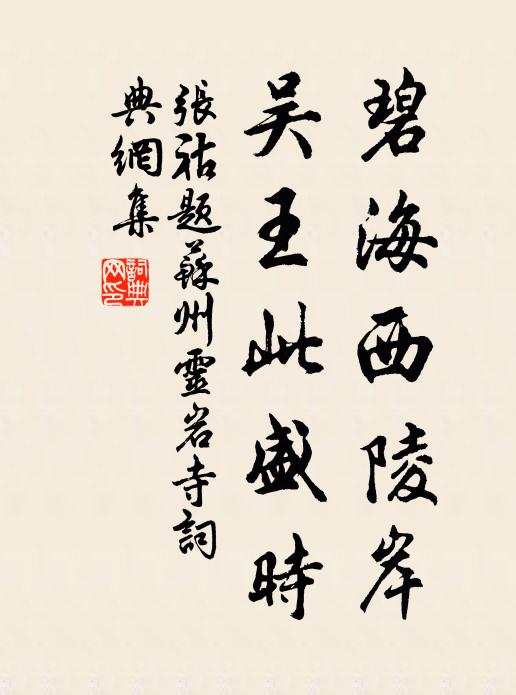 碧海西陵岸
吴王此盛時
張祜題蘇州靈岩寺詞
典網集
詞典网印